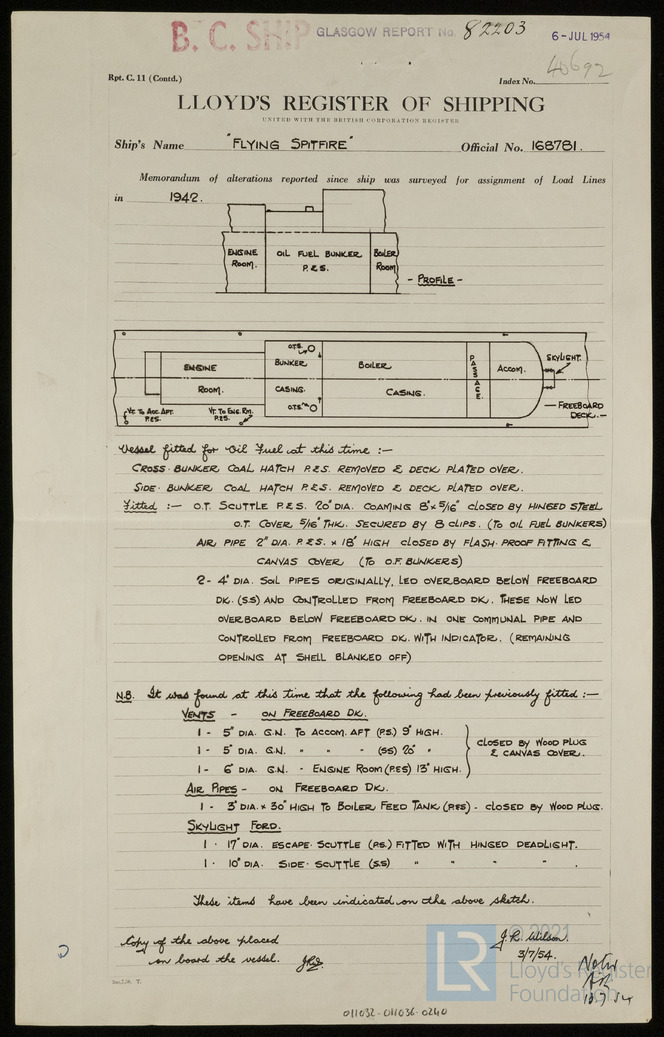 B. C. SHIP GLASGOW REPORT No. 82203 6-JUL 1954
Rpt. C. 11 (Contd.) Index No. 40692
LLOYD'S REGISTER OF SHIPPING
UNITED WITH THE BRITISH CORPORATION REGISTER
Ship's Name "FLYING SPITFIRE" Official No. 168781.
Memorandum of alterations reported since ship was surveyed for assignment of Load Lines
in 1942.
ENGINE ROOM. OIL FUEL BUNKER P.&S. BOILER ROOM
- PROFILE -
ENGINE ROOM. O.T.S. BUNKER CASING. O.T.S. BOILER CASING. PASSAGE ACCOM. SKYLIGHT.
VT. TO ACC. AFT. P.&S. VT. TO ENG. RM. P.&S. FREEBOARD DECK.
Vessel fitted for Oil Fuel at this time :-
CROSS-BUNKER COAL HATCH P.&S. REMOVED & DECK PLATED OVER.
SIDE-BUNKER COAL HATCH P.&S. REMOVED & DECK PLATED OVER.
Fitted :- O.T. SCUTTLE P.&S. 20" DIA. COAMING 8" x 5/16" CLOSED BY HINGED STEEL
O.T. COVER 5/16" THK. SECURED BY 8 CLIPS. (TO OIL FUEL BUNKERS)
AIR PIPE 2" DIA. P.&S. x 18" HIGH CLOSED BY FLASH-PROOF FITTING &
CANVAS COVER (TO O.F. BUNKERS)
2- 4" DIA. SOIL PIPES ORIGINALLY, LED OVERBOARD BELOW FREEBOARD
DK. (S.S) AND CONTROLLED FROM FREEBOARD DK. THESE NOW LED
OVERBOARD BELOW FREEBOARD DK. IN ONE COMMUNAL PIPE AND
CONTROLLED FROM FREEBOARD DK. WITH INDICATOR. (REMAINING
OPENING AT SHELL BLANKED OFF)
N.B. It was found at this time that the following had been previously fitted :-
VENTS - ON FREEBOARD DK.
1 - 5" DIA. G.N. TO ACCOM. AFT (P.S.) 9" HIGH.
1 - 5" DIA. G.N. " " - (SS) 26" "
1 - 6" DIA. G.N. - ENGINE ROOM (P&S) 13" HIGH.
CLOSED BY WOOD PLUG
& CANVAS COVER.
AIR PIPES - ON FREEBOARD DK.
1 - 3" DIA. x 30" HIGH TO BOILER FEED TANK (P&S) - CLOSED BY WOOD PLUG.
SKYLIGHT FORD.
1 - 17" DIA. ESCAPE-SCUTTLE (P.S.) FITTED WITH HINGED DEADLIGHT.
1 - 10" DIA. SIDE-SCUTTLE (S.S) " " " "
These items have been indicated on the above sketch.
Copy of the above placed
on board the vessel.
J.R. Wilson.
3/7/54.
© 2021
LR Lloyd's Register
Foundation
011032-011036-0240